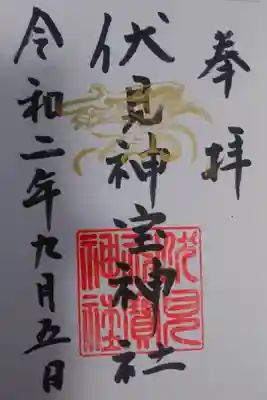 奉拝
伏見神宝神社
令和二年九月五日
伏見
神寶
神社